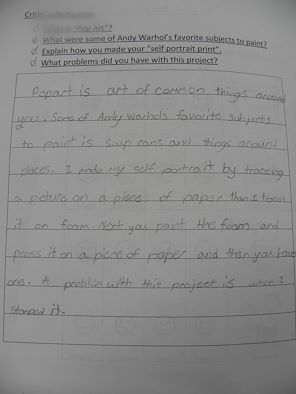 Critical Reflection
What is "Pop Art"?
What were some of Andy Warhol's favorite subjects to paint?
Explain how you made your "self portrait print".
What problems did you have with this project?
Popart is art of common things around
you. Some of Andy Warhols favorite subjects
to paint is soup cans and things around
places. I made my self portrait by traceing
a picture on a piece of paper than I traced
it on foam. Next you paint the foam and
press it on a piece of paper and then you have
one. A problem with this project is when I
stamped it.